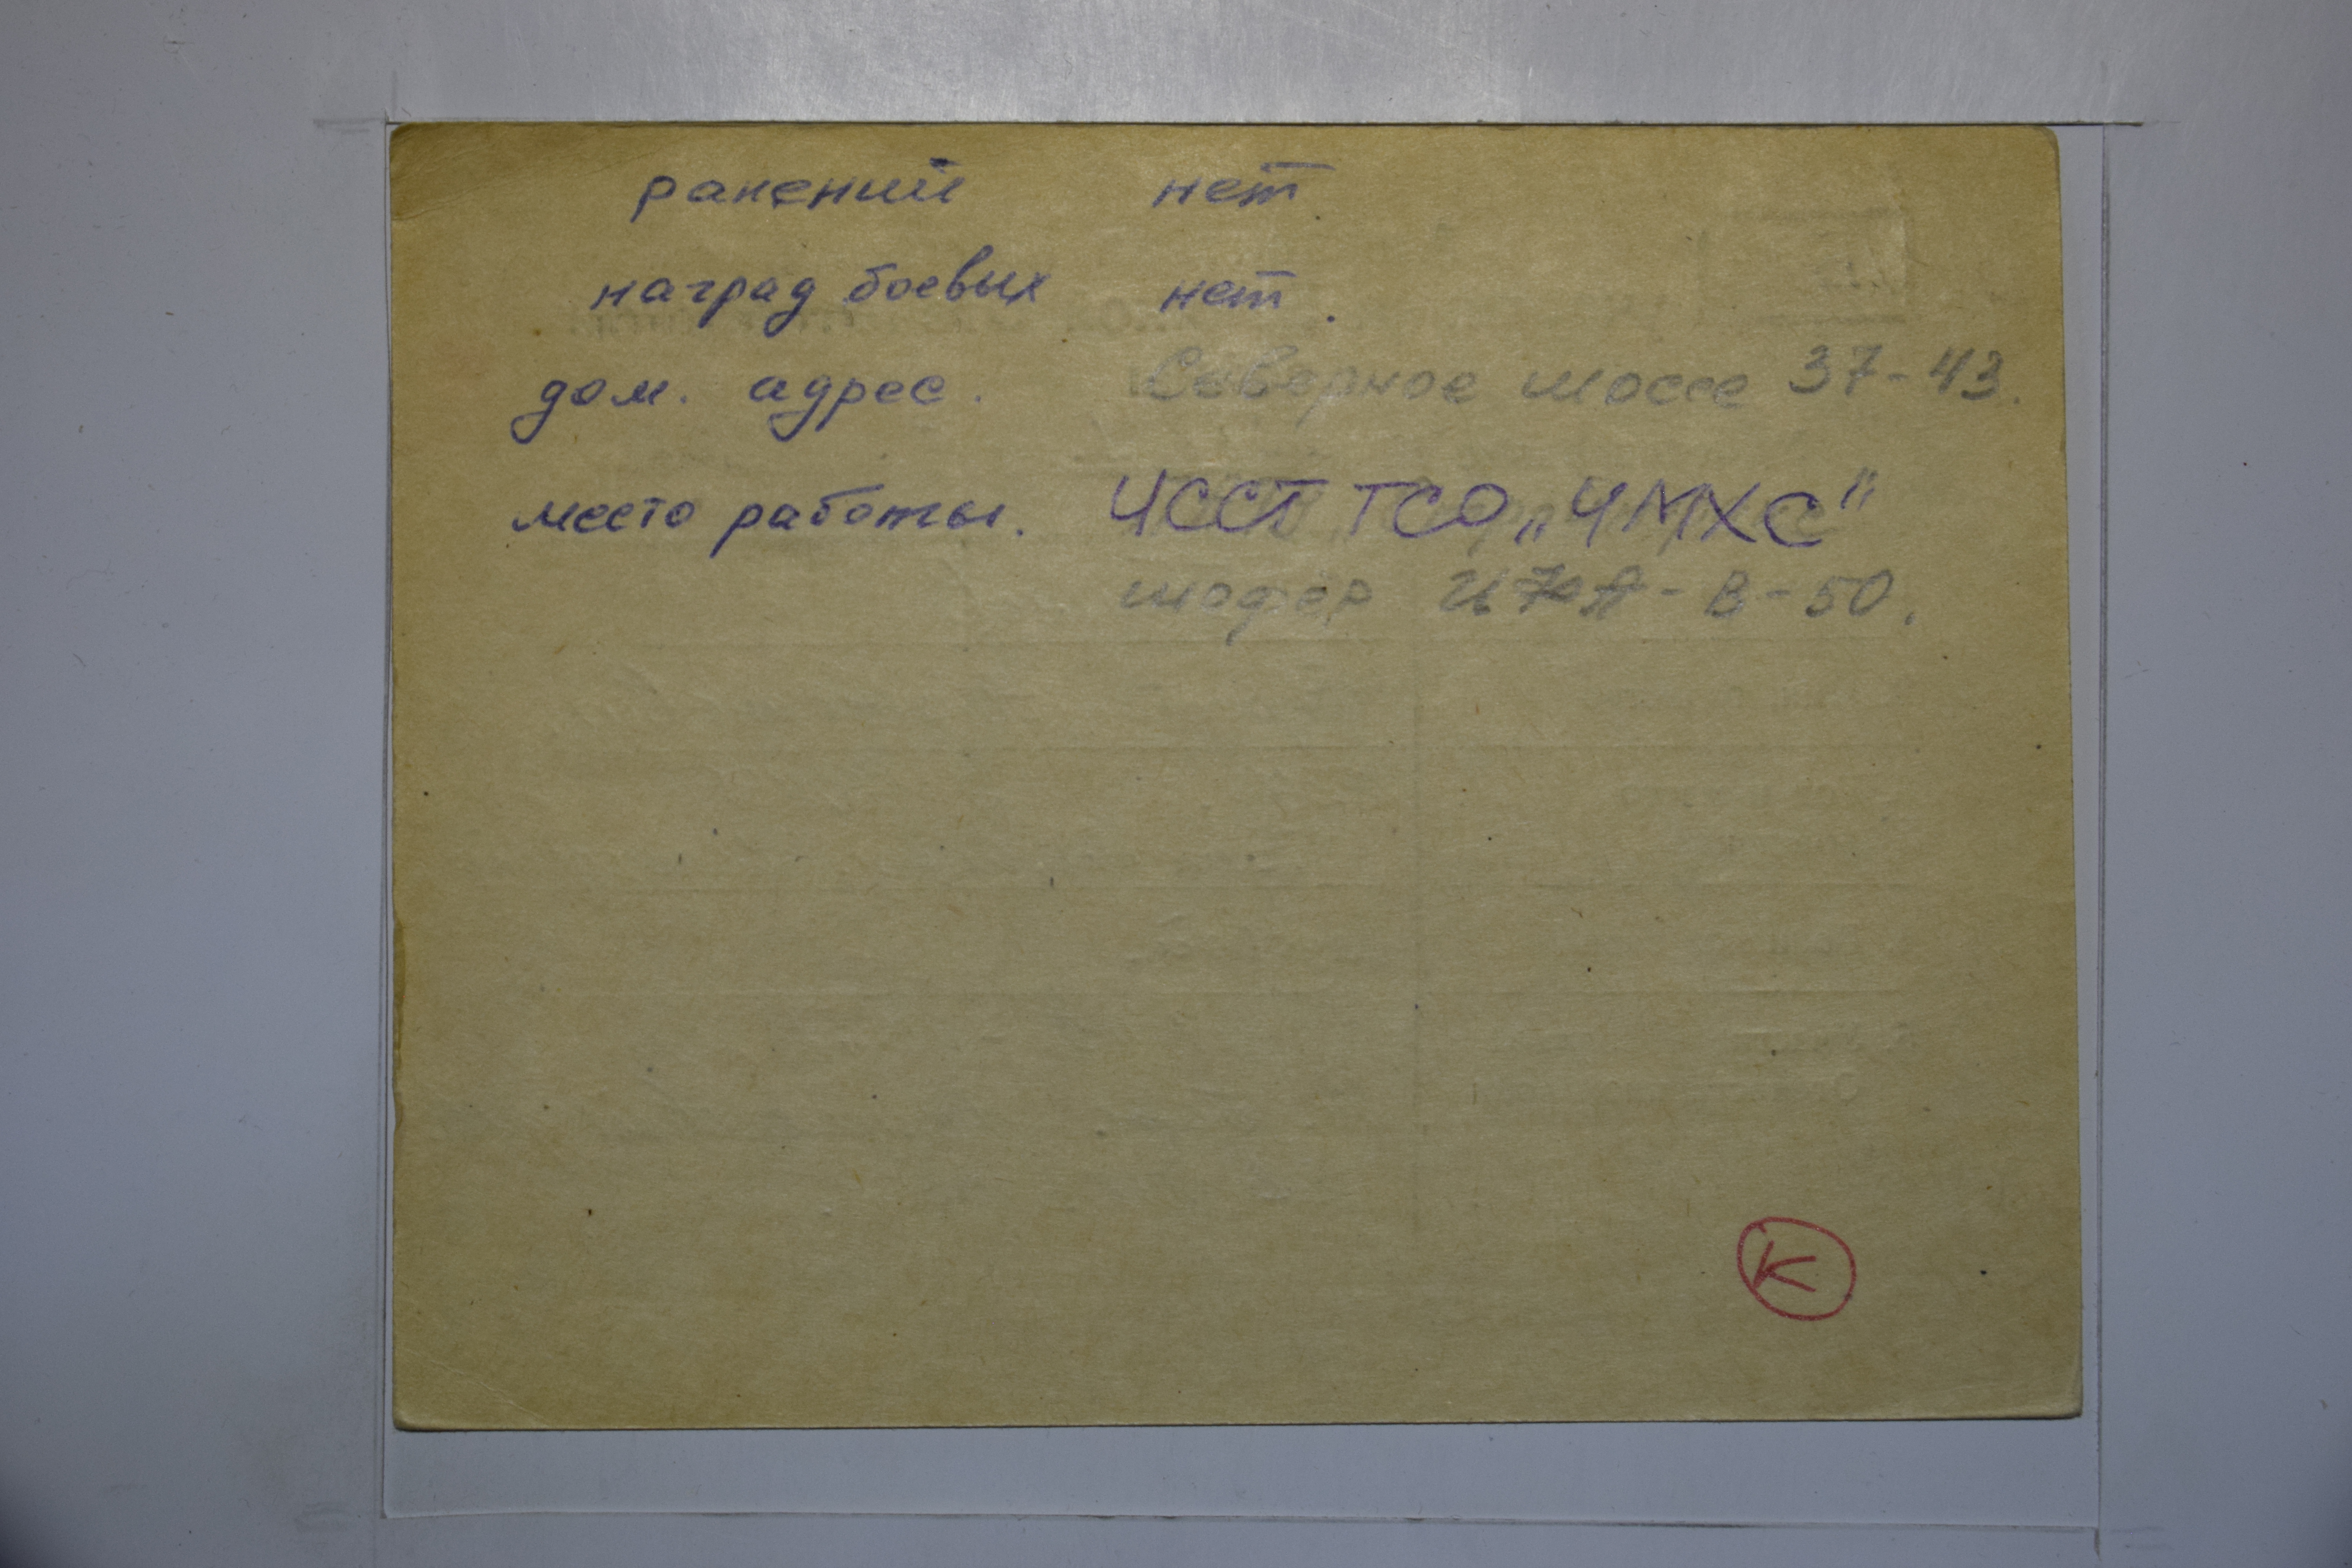 ранений нет.
наград боевых нет.
дом. адрес. Северное шоссе 37-43.
место работы. ЧССТ ТСО „ЧМХС"
шофер В-50.
К